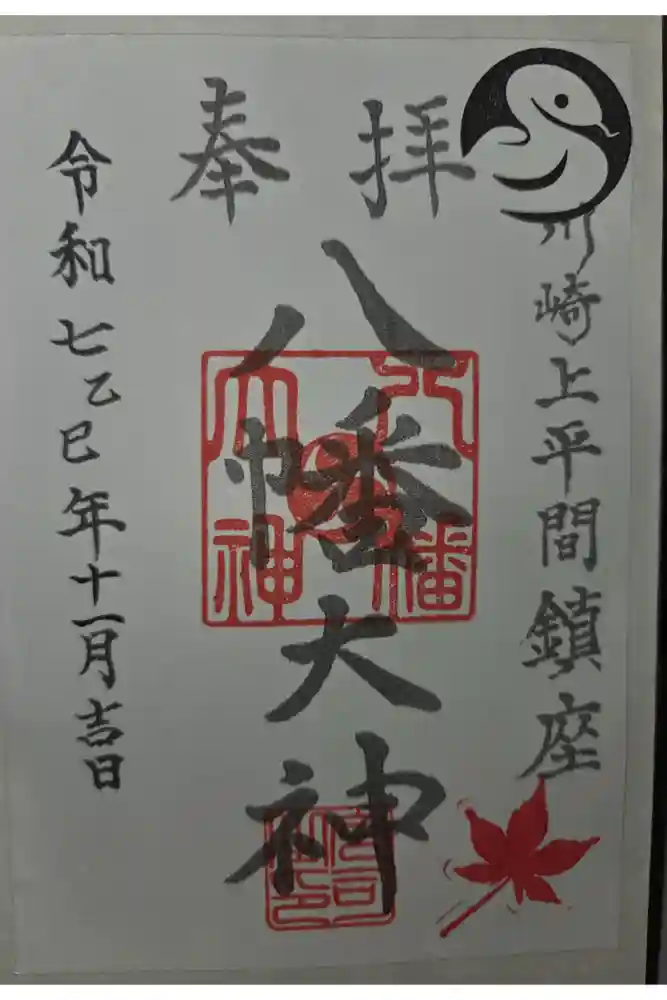 川崎上平間鎮座
奉拝
八幡大神
八幡
大神
宮司之印
令和七乙巳年十一月吉日